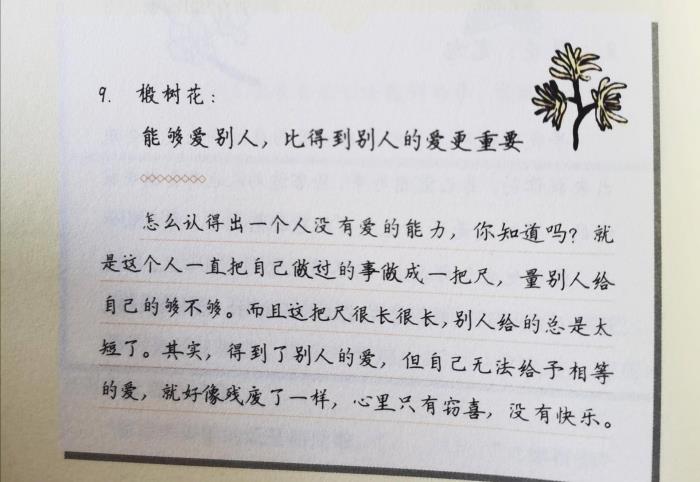 9. 椴树花：
能够爱别人，比得到别人的爱更重要
怎么认得出一个人没有爱的能力，你知道吗？就
是这个人一直把自己做过的事做成一把尺，量别人给
自己的够不够。而且这把尺很长很长，别人给的总是太
短了。其实，得到了别人的爱，但自己无法给予相等
的爱，就好像残废了一样，心里只有窃喜，没有快乐。